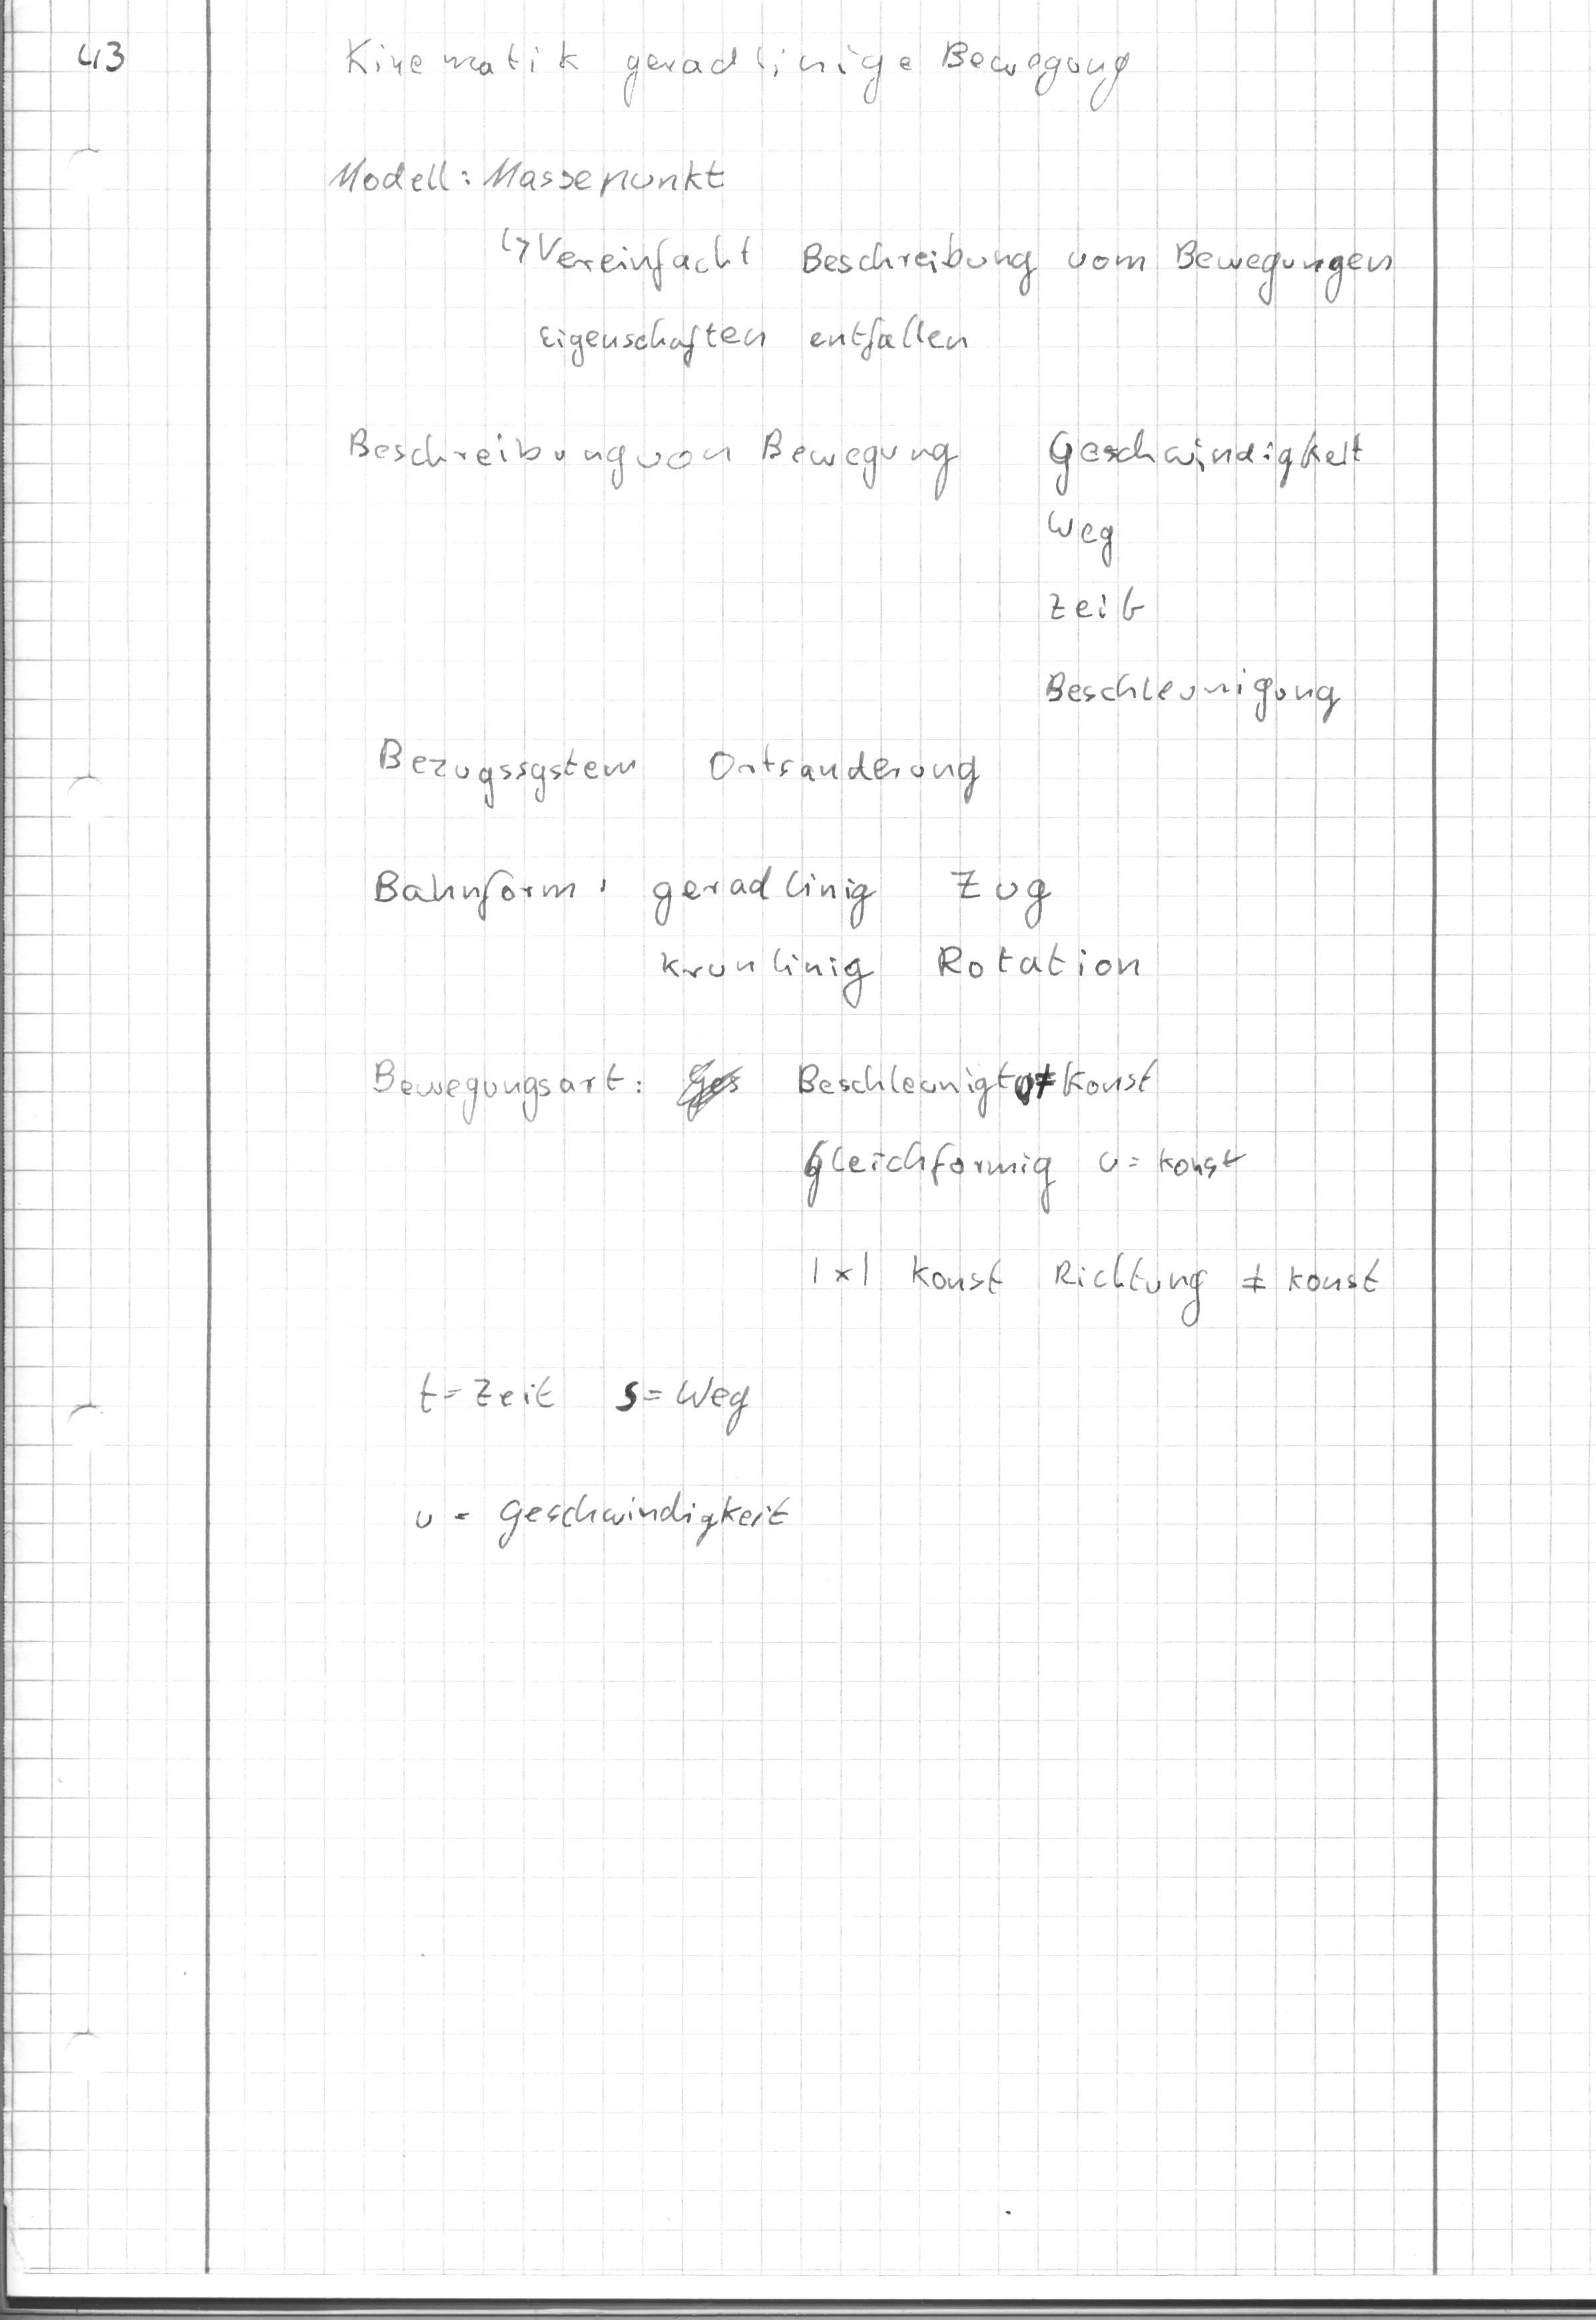 43 Kinematik geradlinige Bewegung
Modell: Massepunkt
↳ Vereinfacht Beschreibung vom Bewegungen
Eigenschaften entfallen
Beschreibung von Bewegung Geschwindigkeit
Weg
Zeit
Beschleunigung
Bezugssystem Ortsanderung
Bahnform: geradlinig Zug
krunlinig Rotation
Bewegungsart: Beschleunigt v≠ Konst
Gleichformig v = konst
|x| Konst Richtung ≠ konst
t = Zeit s = Weg
v = Geschwindigkeit